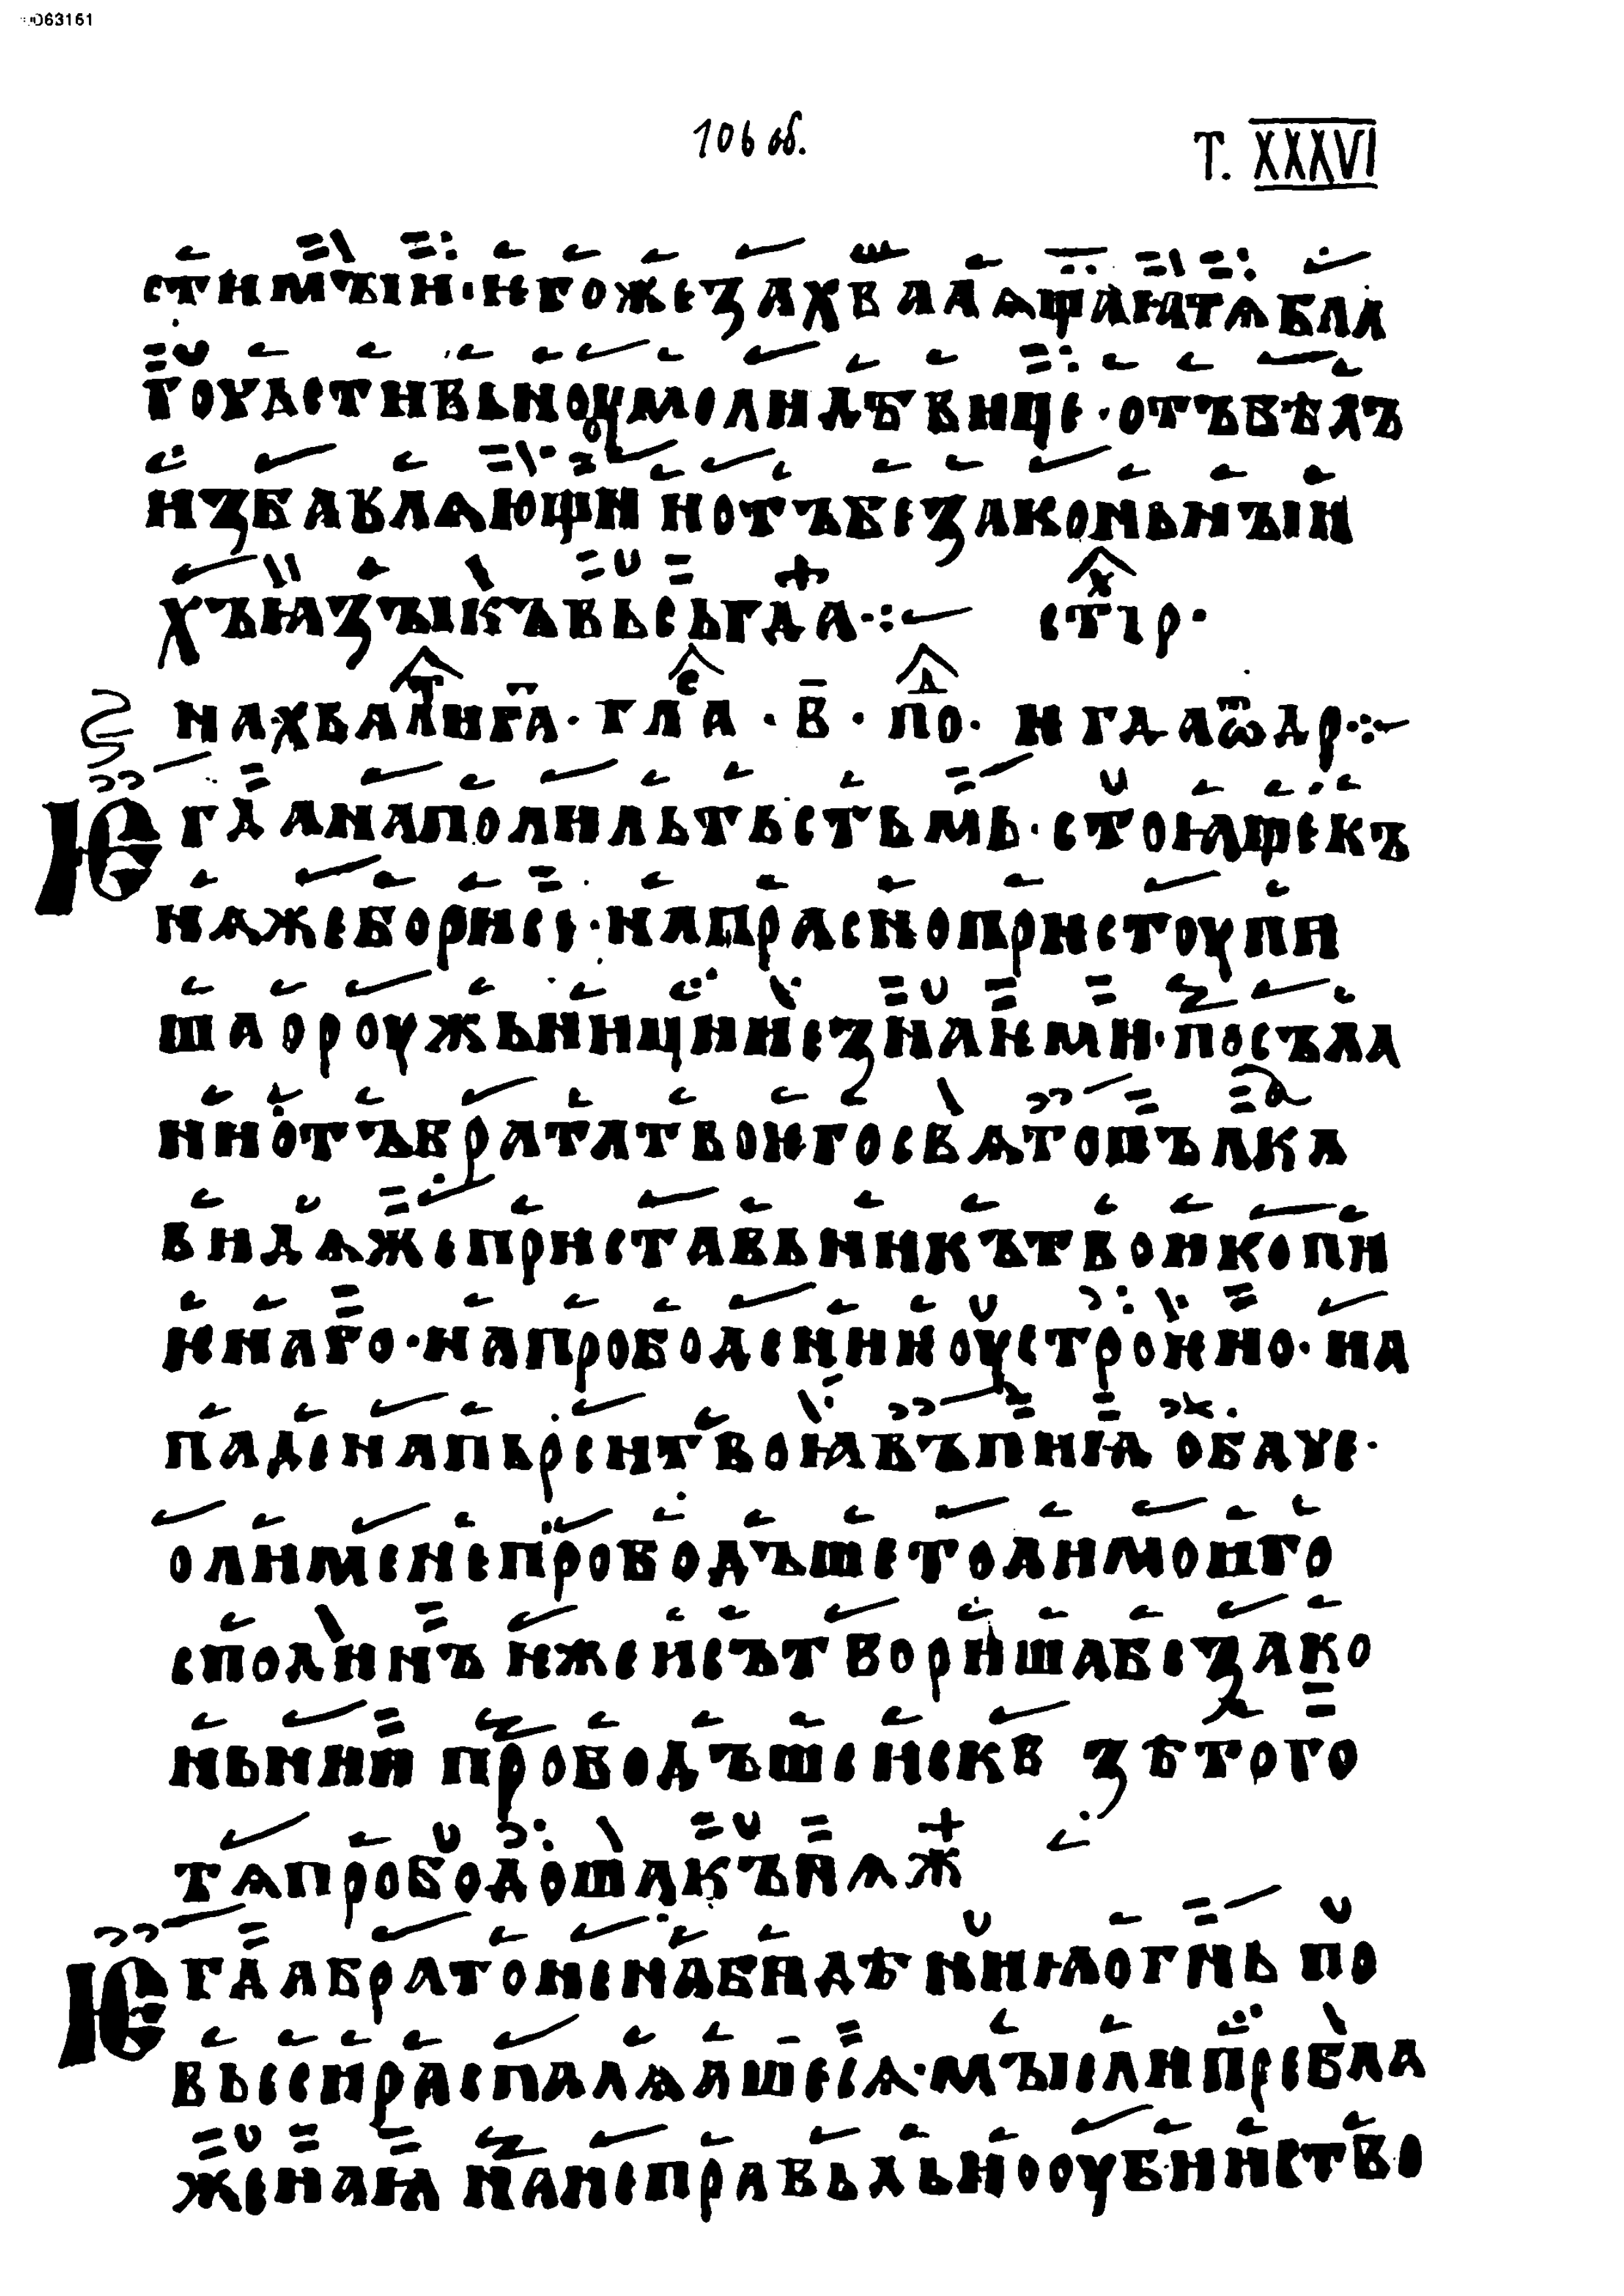 063161
106 об.
Т. XXXVI
стимъıи·ѥгожезахвалѧщаꙗтѧбла
гоучестивьноумолидѣвице·отъвѣлъ
избавлѧющи иотъбезаконьнъıи
хъꙗзъıкъвьсьгда·:~ стⷯıр·
нахвалⷮııга·глⷭа·в·поⷧ·ѥгдаѿдр·:~
Ѥгданаполильтьстьмь·стоꙗщекъ
нѧжеборисе·напраснопристоупи
шаороужьницинезнаѥми·посъла
ниотъбрататвоѥгосвѧтопълка
видѧжеприставьникътвоикопи
ѥнаго·напрободенинюустроѥно·на
паденапьрситвоꙗвъпиꙗ обаче·
олименепробод́ъшетолимоѥго
сполинъ ижеисътворишабезако
ньнии пробод́ъшеискв зѣтого
тѧпробод́ошакънѧж
Ѥгдабратоненавидѣниꙗогнь по
вьсейраспалѧашесѧ·мъıслипребла
женаꙗ нанеправьдьнооубииство